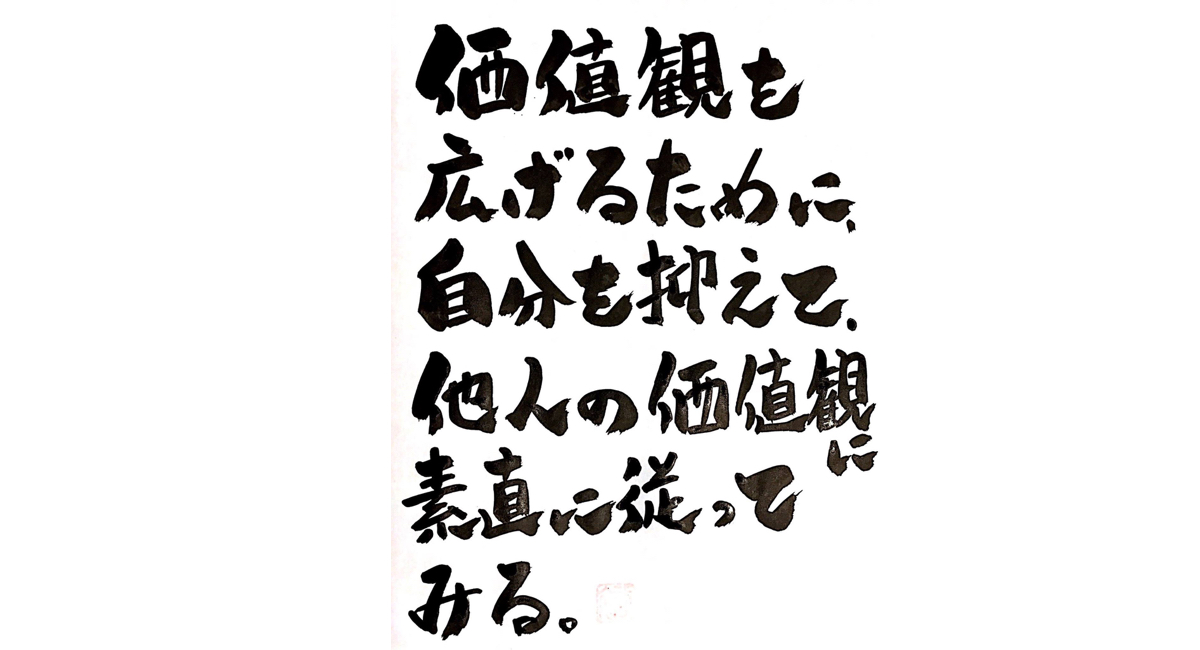 価値観を
広げるために、
自分を抑えて、
他人の価値観に
素直に従って
みる。